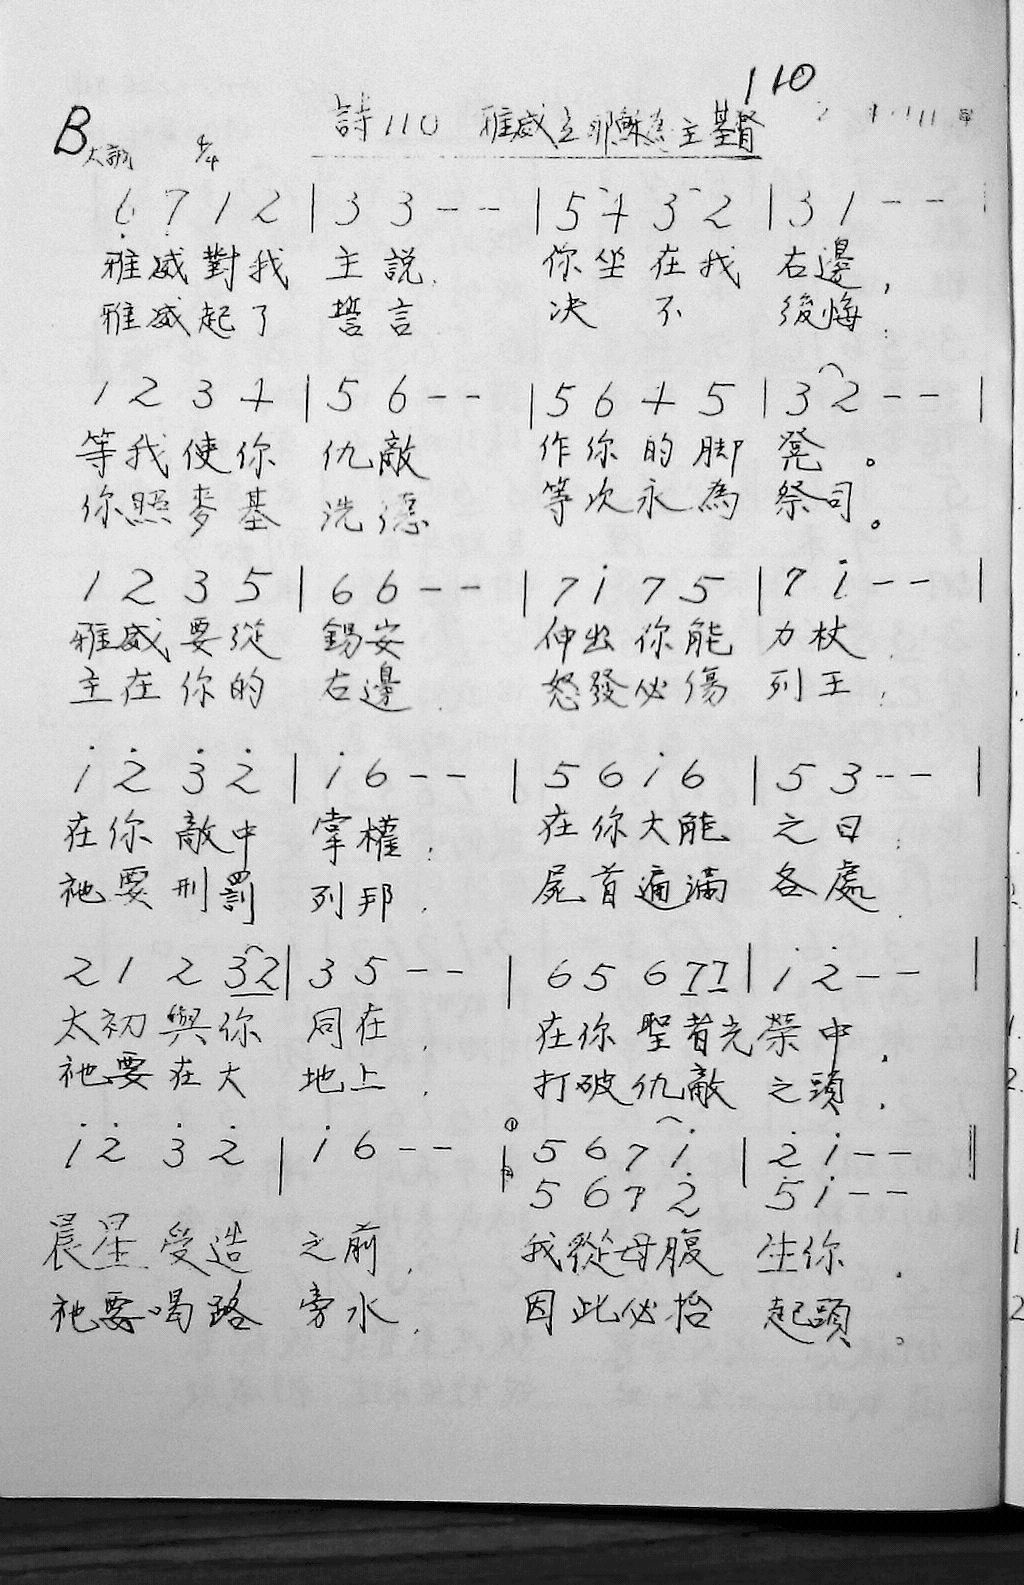 110
詩110 雅威立耶穌為主基督
B大調 4/4
6̣ 7̣ 1 2 | 3 3 - - | 5 4 3 2 | 3 1 - - |
雅威對我 主說. 你坐在我 右邊,
雅威起了 誓言 決 不 後悔.
1 2 3 4 | 5 6 - - | 5 6 4 5 | 3 2 - - |
等我使你 仇敵 作你的脚 凳。
你照麥基 洗德 等次永為 祭司。
1 2 3 5 | 6 6 - - | 7 i 7 5 | 7 i - - |
雅威要從 錫安 伸出你能 力杖.
主在你的 右邊. 怒發必傷 列王.
i 2̇ 3̇ 2̇ | i 6 - - | 5 6 i 6 | 5 3 - - |
在你敵中 掌權. 在你大能 之日.
祂要刑罰 列邦. 屍首遍滿 各處.
2 1 2 3 2 | 3 5 - - | 6 5 6 7 7 | i 2̇ - - |
太初與你 同在. 在你聖者光榮中.
祂要在大 地上. 打破仇敵 之頭.
i 2̇ 3̇ 2̇ | i 6 - - | 5 6 7 i | 2̇ i - - ‖
5 6 7 2̇ 5̇ i - -
晨星受造 之前. 我從母腹 生你.
祂要喝路 旁水. 因此必抬 起頭。